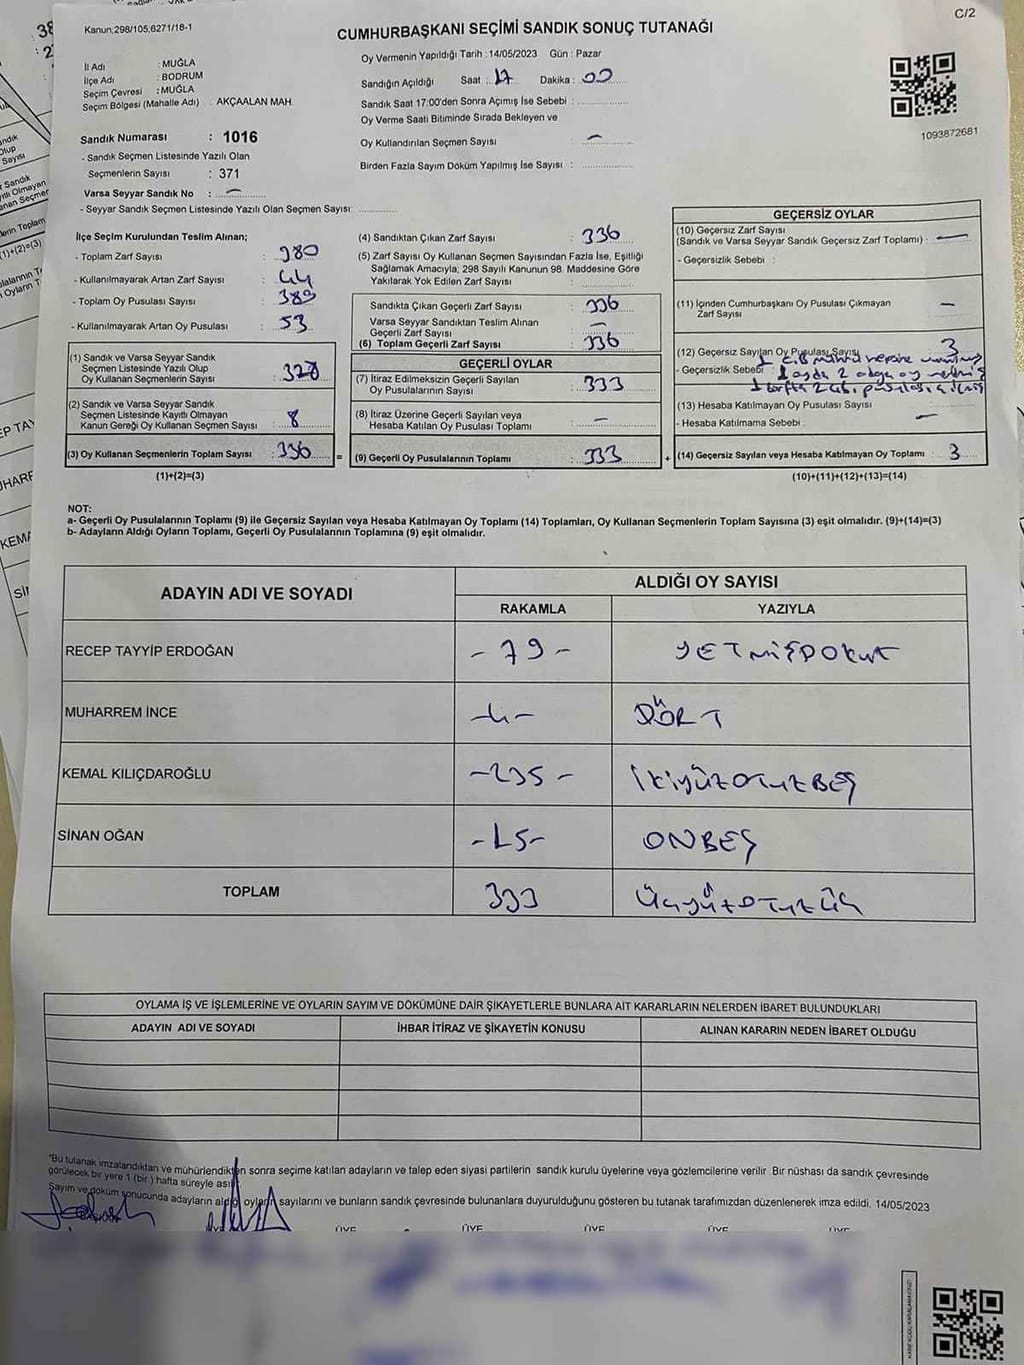 C/2
Kanun:298/105,6271/18-1
CUMHURBAŞKANI SEÇİMİ SANDIK SONUÇ TUTANAĞI
İl Adı : MUĞLA
İlçe Adı : BODRUM
Seçim Çevresi : MUĞLA
Seçim Bölgesi (Mahalle Adı) : AKÇAALAN MAH.
Sandık Numarası : 1016
- Sandık Seçmen Listesinde Yazılı Olan
Seçmenlerin Sayısı : 371
Varsa Seyyar Sandık No : —
- Seyyar Sandık Seçmen Listesinde Yazılı Olan Seçmen Sayısı:
Oy Vermenin Yapıldığı Tarih :14/05/2023 Gün : Pazar
Sandığın Açıldığı Saat : 17 Dakika : 00
Sandık Saat 17:00'den Sonra Açımış İse Sebebi :
Oy Verme Saati Bitiminde Sırada Bekleyen ve
Oy Kullandırılan Seçmen Sayısı : —
Birden Fazla Sayım Döküm Yapılmış İse Sayısı :
1093872681
İlçe Seçim Kurulundan Teslim Alınan;
- Toplam Zarf Sayısı : 380
- Kullanılmayarak Artan Zarf Sayısı : 44
- Toplam Oy Pusulası Sayısı : 389
- Kullanılmayarak Artan Oy Pusulası : 53
(1) Sandık ve Varsa Seyyar Sandık
Seçmen Listesinde Yazılı Olup
Oy Kullanan Seçmenlerin Sayısı : 328
(2) Sandık ve Varsa Seyyar Sandık
Seçmen Listesinde Kayıtlı Olmayan
Kanun Gereği Oy Kullanan Seçmen Sayısı : 8
(3) Oy Kullanan Seçmenlerin Toplam Sayısı : 336 =
(1)+(2)=(3)
(4) Sandıktan Çıkan Zarf Sayısı : 336
(5) Zarf Sayısı Oy Kullanan Seçmen Sayısından Fazla İse, Eşitliği
Sağlamak Amacıyla, 298 Sayılı Kanunun 98. Maddesine Göre
Yakılarak Yok Edilen Zarf Sayısı :
Sandıkta Çıkan Geçerli Zarf Sayısı : 336
Varsa Seyyar Sandıktan Teslim Alınan
Geçerli Zarf Sayısı : —
(6) Toplam Geçerli Zarf Sayısı : 336
GEÇERLİ OYLAR
(7) İtiraz Edilmeksizin Geçerli Sayılan
Oy Pusulalarının Sayısı : 333
(8) İtiraz Üzerine Geçerli Sayılan veya
Hesaba Katılan Oy Pusulası Toplamı : —
(9) Geçerli Oy Pusulalarının Toplamı : 333 +
GEÇERSİZ OYLAR
(10) Geçersiz Zarf Sayısı
(Sandık ve Varsa Seyyar Sandık Geçersiz Zarf Toplamı) : —
- Geçersizlik Sebebi :
(11) İçinden Cumhurbaşkanı Oy Pusulası Çıkmayan
Zarf Sayısı : —
(12) Geçersiz Sayılan Oy Pusulası Sayısı 3
- Geçersizlik Sebebi :
1 oyda 2 adaya oy
(13) Hesaba Katılmayan Oy Pusulası Sayısı :
- Hesaba Katılmama Sebebi : —
(14) Geçersiz Sayılan veya Hesaba Katılmayan Oy Toplamı : 3
(10)+(11)+(12)+(13)=(14)
NOT:
a- Geçerli Oy Pusulalarının Toplamı (9) ile Geçersiz Sayılan veya Hesaba Katılmayan Oy Toplamı (14) Toplamları, Oy Kullanan Seçmenlerin Toplam Sayısına (3) eşit olmalıdır. (9)+(14)=(3)
b- Adayların Aldığı Oyların Toplamı, Geçerli Oy Pusulalarının Toplamına (9) eşit olmalıdır.
ADAYIN ADI VE SOYADI
ALDIĞI OY SAYISI
RAKAMLA
YAZIYLA
RECEP TAYYİP ERDOĞAN - 79 - YETMİŞDOKUZ
MUHARREM İNCE -4- DÖRT
KEMAL KILIÇDAROĞLU -235- İKİYÜZOTUZBEŞ
SİNAN OĞAN -15- ONBEŞ
TOPLAM 333 ÜÇYÜZOTUZÜÇ
OYLAMA İŞ VE İŞLEMLERİNE VE OYLARIN SAYIM VE DÖKÜMÜNE DAİR ŞİKAYETLERLE BUNLARA AİT KARARLARIN NELERDEN İBARET BULUNDUKLARI
ADAYIN ADI VE SOYADI
İHBAR İTİRAZ VE ŞİKAYETİN KONUSU
ALINAN KARARIN NEDEN İBARET OLDUĞU
*Bu tutanak imzalandıktan ve mühürlendikten sonra seçime katılan adayların ve talep eden siyasi partilerin sandık kurulu üyelerine veya gözlemcilerine verilir. Bir nüshası da sandık çevresinde
görülecek bir yere 1 (bir) hafta süreyle asılır.
Sayım ve döküm sonucunda adayların aldığı oyların sayılarını ve bunların sandık çevresinde bulunanlara duyurulduğunu gösteren bu tutanak tarafımızdan düzenlenerek imza edildi. 14/05/2023
ÜYE ÜYE ÜYE ÜYE ÜYE